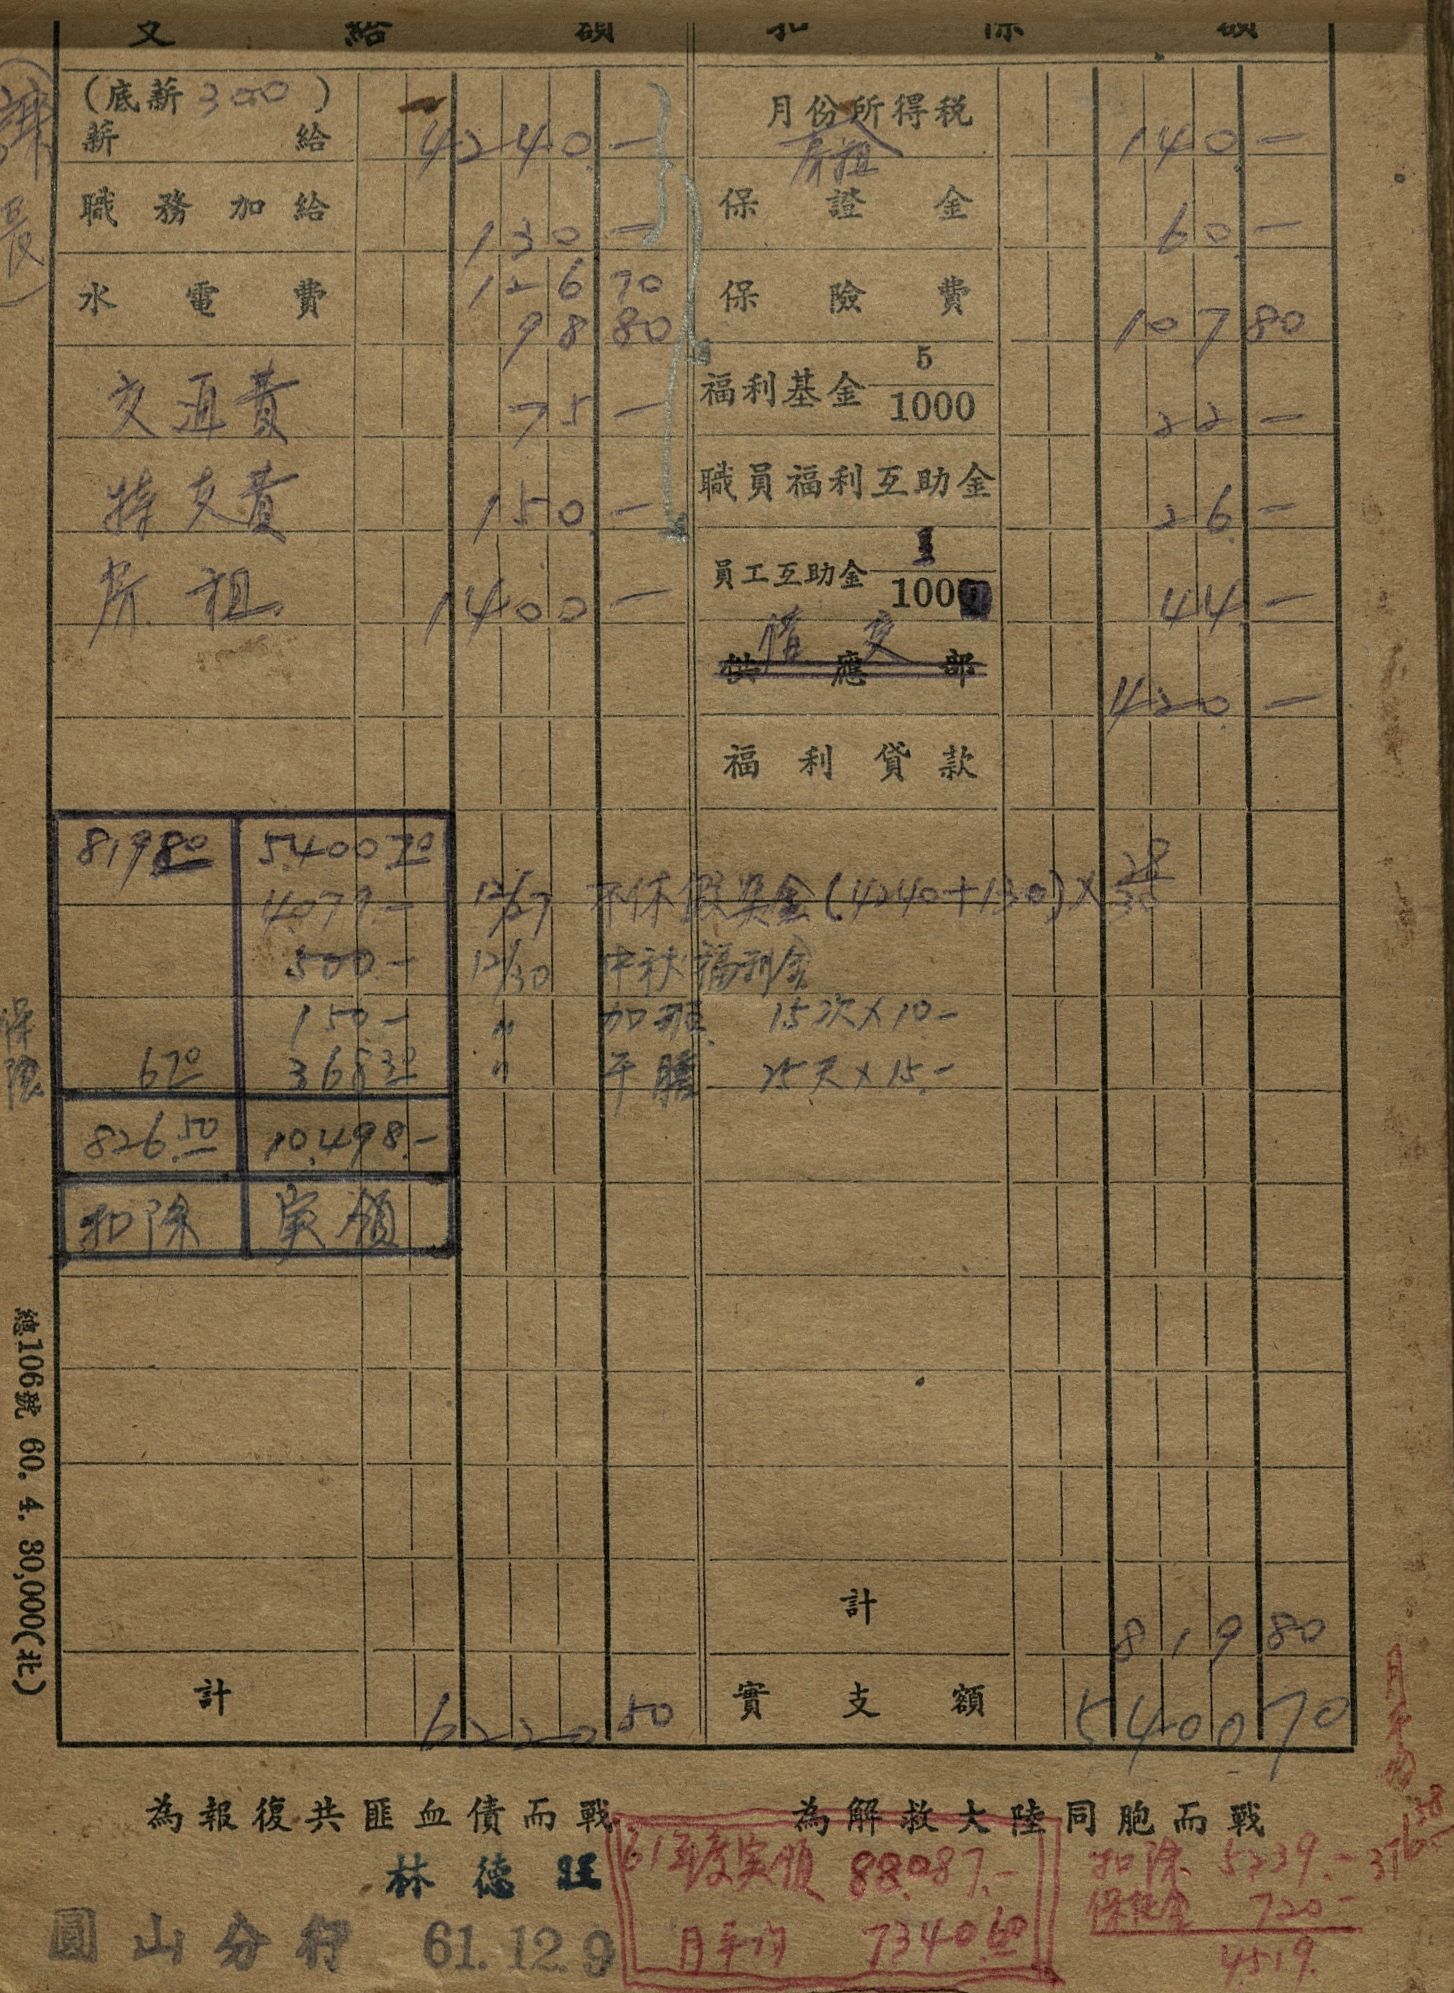 支給額 扣除額
(底薪300)
薪給 4240.—
職務加給 130.—
水電費 126 70
98 80
交通費 75.—
特支費 150.—
房租 1400.—
月份所得稅 140.—
房租
保證金 60.—
保險費 107 80
福利基金 5/1000 22.—
職員福利互助金 26.—
員工互助金 1/100 44.—
供應部
借支 420.—
福利貸款
819 80 5400 70
4079.— 12/27 不休假奖金(4240+130)×28/30
500.— 12/30 中秋福利金
150.— 〃 加班 15次×10.—
6 70 368 30 〃 午膳 25天×15.—
826.50 10,498.—
扣除 実領
計 819 80
計 6220 50
實支額 5400 70
課長)
保險
總106號 60. 4. 30,000(北)
為報復共匪血債而戰 為解救大陸同胞而戰
林德旺
圓山分行 61.12.9
61年度実領 88,087.—
月平均 7340.60
扣除 5239.—
保証金 720.—
4519.
月平均
376.58